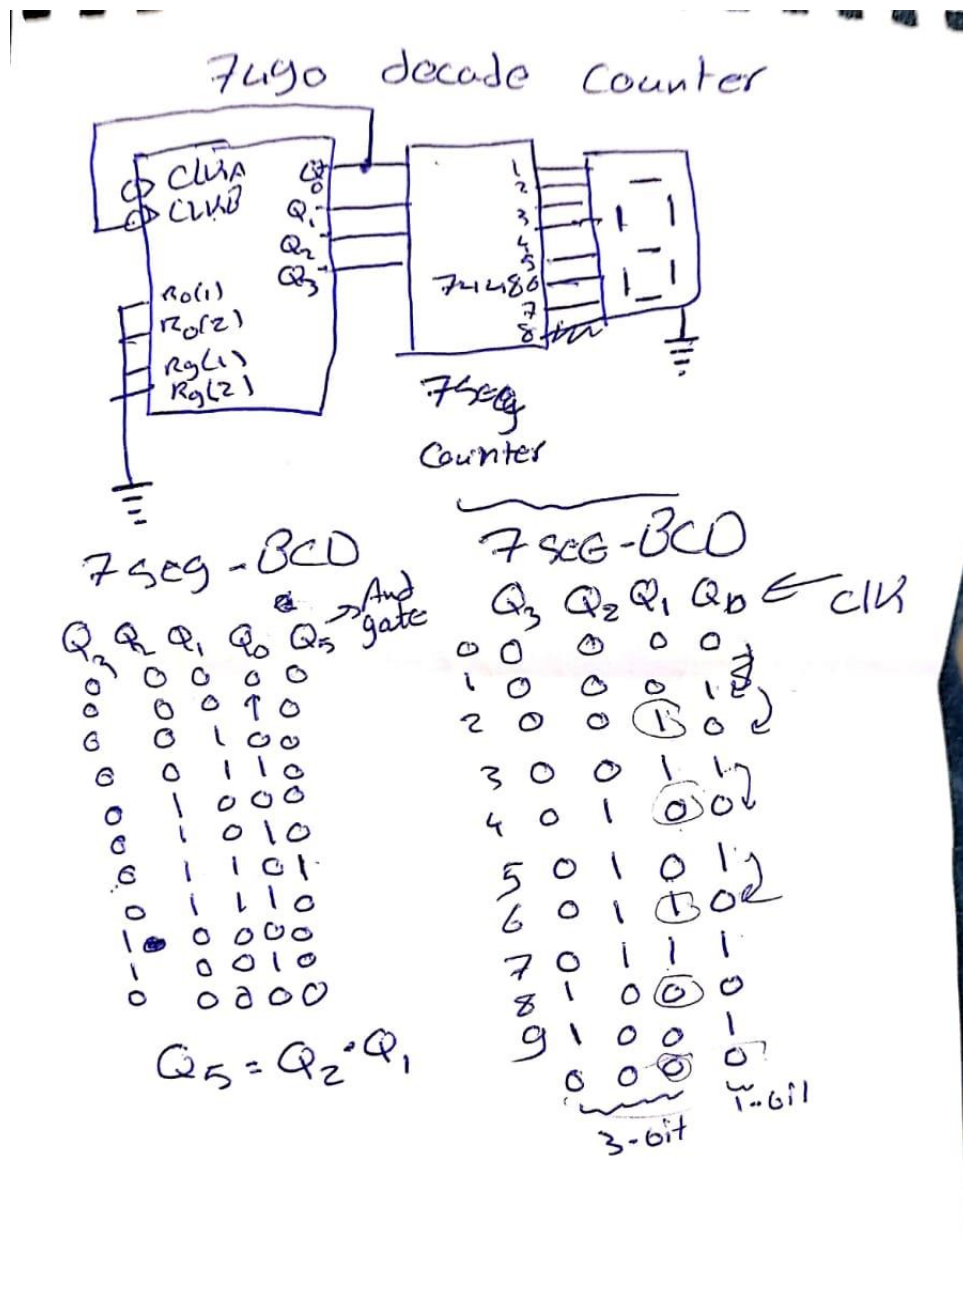 7490 decade Counter
CLKA
CLKB
Q0
Q1
Q2
Q3
R0(1)
R0(2)
R9(1)
R9(2)
1
2
3
4
5
6
7
8
7448
7seg
Counter
7seg - BCD
And
gate
Q3 Q2 Q1 Q0 Q5
0 0 0 0 0
0 0 0 1 0
0 0 1 0 0
0 0 1 1 0
0 1 0 0 0
0 1 0 1 0
0 1 1 0 1
0 1 1 1 0
1 0 0 0 0
1 0 0 1 0
0 0 0 0 0
Q5 = Q2 · Q1
7 SEG - BCD
Q3 Q2 Q1 Q0 ← clk
0 0 0 0 0
1 0 0 0 1
2 0 0 1 0
3 0 0 1 1
4 0 1 0 0
5 0 1 0 1
6 0 1 1 0
7 0 1 1 1
8 1 0 0 0
9 1 0 0 1
0 0 0 0
3-bit 1-bit